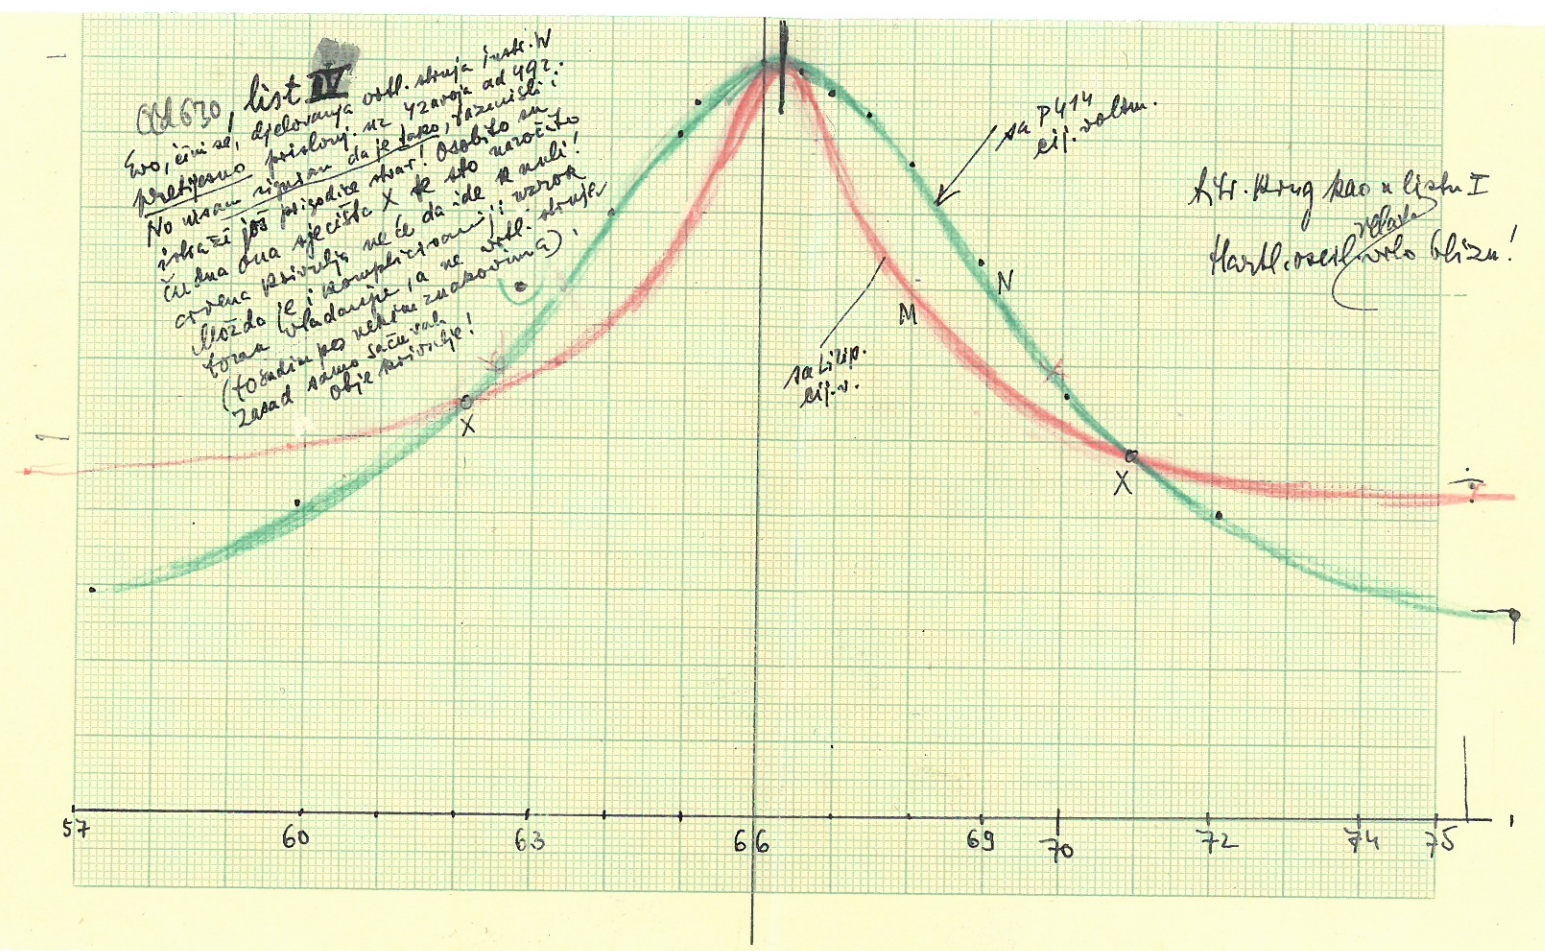 ad 630, list IV
Evo, čini se, djelovanja vrtl. struja instr. W
pretijesno prislonj. uz 4 zavoja ad 492.
No nisam siguran da je tako, razmisli i
istraži još prigodice stvar! Osobito su
čudna ona sjecišta X te što naročito
crvena krivulja neće da ide k nuli!
Možda je i kompliciraniji uzrok
tomu vladanju, a ne vrtl. struje
zasad samo sačuvah
obje krivulje!
sa P414
cij. voltm.
titr. krug kao u listu I
Hartl. oscil. vrlo blizu!
N
M
cij. v.
X
X
57
60
63
66
69
70
72
74
75